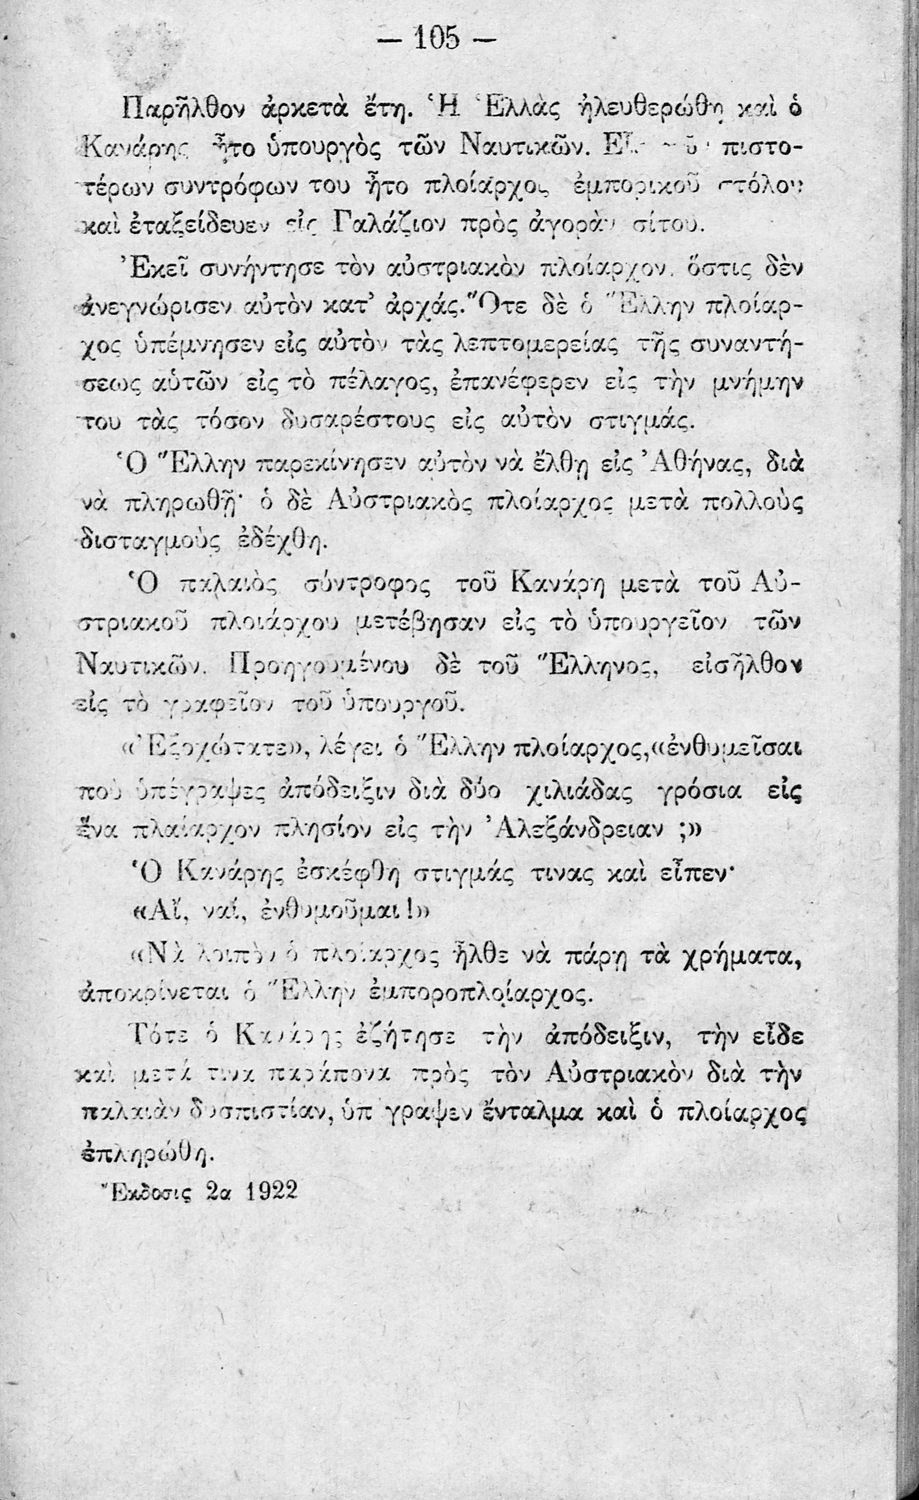 — 105 —
Παρῆλθον ἀρκετὰ ἔτη. Ἡ Ἑλλὰς ἠλευθερώθη καὶ ὁ
Κανάρης ἦτο ὑπουργὸς τῶν Ναυτικῶν. πιστο-
τέρων συντρόφων του ἦτο πλοίαρχος ἐμπορικοῦ στόλου
καὶ ἐταξείδευεν εἰς Γαλάζιον πρὸς ἀγορὰν σίτου.
Ἐκεῖ συνήντησε τὸν αὐστριακὸν πλοίαρχον, ὅστις δὲν
ἀνεγνώρισεν αὐτὸν κατ' ἀρχάς. Ὅτε δὲ ὁ Ἕλλην πλοίαρ-
χος ὑπέμνησεν εἰς αὐτὸν τὰς λεπτομερείας τῆς συναντή-
σεως αὐτῶν εἰς τὸ πέλαγος, ἐπανέφερεν εἰς τὴν μνήμην
του τὰς τόσον δυσαρέστους εἰς αὐτὸν στιγμάς.
Ὁ Ἕλλην παρεκίνησεν αὐτὸν νὰ ἔλθῃ εἰς Ἀθήνας, διὰ
νὰ πληρωθῇ· ὁ δὲ Αὐστριακὸς πλοίαρχος μετὰ πολλοὺς
δισταγμοὺς ἐδέχθη.
Ὁ παλαιὸς σύντροφος τοῦ Κανάρη μετὰ τοῦ Αὐ-
στριακοῦ πλοιάρχου μετέβησαν εἰς τὸ ὑπουργεῖον τῶν
Ναυτικῶν. Προηγουμένου δὲ τοῦ Ἕλληνος, εἰσῆλθον
εἰς τὸ γραφεῖον τοῦ ὑπουργοῦ.
«Ἐξοχώτατε», λέγει ὁ Ἕλλην πλοίαρχος, «ἐνθυμεῖσαι
ποὺ ὑπέγραψες ἀπόδειξιν διὰ δύο χιλιάδας γρόσια εἰς
ἕνα πλοίαρχον πλησίον εἰς τὴν Ἀλεξάνδρειαν ;»
Ὁ Κανάρης ἐσκέφθη στιγμάς τινας καὶ εἶπεν·
«Αἴ, ναί, ἐνθυμοῦμαι!»
«Νὰ λοιπὸν ὁ πλοίαρχος ἦλθε νὰ πάρῃ τὰ χρήματα,
ἀποκρίνεται ὁ Ἕλλην ἐμποροπλοίαρχος.
Τότε ὁ Κανάρης ἐζήτησε τὴν ἀπόδειξιν, τὴν εἶδε
καὶ μετά τινα παράπονα πρὸς τὸν Αὐστριακὸν διὰ τὴν
παλαιὰν δυσπιστίαν, ὑπ γραψεν ἔνταλμα καὶ ὁ πλοίαρχος
ἐπληρώθη.
Ἔκδοσις 2α 1922